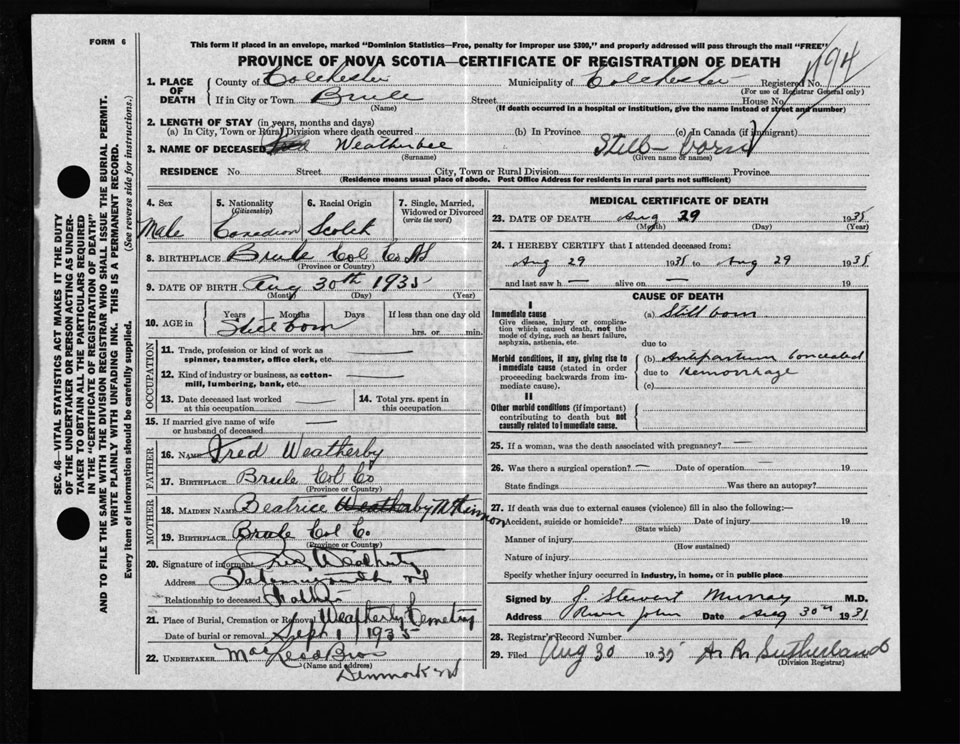 FORM 6
This form if placed in an envelope, marked "Dominion Statistics—Free, penalty for improper use $300," and properly addressed will pass through the mail "FREE"
PROVINCE OF NOVA SCOTIA—CERTIFICATE OF REGISTRATION OF DEATH
1. PLACE OF DEATH
County of Colchester Municipality of Colchester Registered No.
(For use of Registrar General only)
If in City or Town Brule Street House No.
(Name) (If death occurred in a hospital or institution, give the name instead of street and number)
2. LENGTH OF STAY (in years, months and days)
(a) In City, Town or Rural Division where death occurred (b) In Province (c) In Canada (if immigrant)
3. NAME OF DECEASED Weatherbee Still-born
(Surname) (Given name or names)
RESIDENCE No. Street City, Town or Rural Division Province
(Residence means usual place of abode. Post Office Address for residents in rural parts not sufficient)
4. Sex
Male
5. Nationality (Citizenship)
Canadian
6. Racial Origin
Scotch
7. Single, Married, Widowed or Divorced (write the word)
8. BIRTHPLACE Brule Col Co NS
(Province or Country)
9. DATE OF BIRTH Aug 30th 1935
(Month) (Day) (Year)
10. AGE in Years Months Days If less than one day old
Stillborn hrs. or min.
OCCUPATION
11. Trade, profession or kind of work as spinner, teamster, office clerk, etc.
12. Kind of industry or business, as cotton-mill, lumbering, bank, etc.
13. Date deceased last worked at this occupation
14. Total yrs. spent in this occupation
15. If married give name of wife or husband of deceased
FATHER
16. NAME Fred Weatherby
17. BIRTHPLACE Brule Col Co
(Province or Country)
MOTHER
18. MAIDEN NAME Beatrice Weatherby McKinnon
19. BIRTHPLACE Brule Col Co
(Province or Country)
20. Signature of informant
Address Tatamagouche NS
Relationship to deceased Father
21. Place of Burial, Cremation or Removal Weatherby Cemetery
Date of burial or removal Sept 1 1935
22. UNDERTAKER MacLeod Bros
(Name and address)
Denmark NS
MEDICAL CERTIFICATE OF DEATH
23. DATE OF DEATH Aug 29 1935
(Month) (Day) (Year)
24. I HEREBY CERTIFY that I attended deceased from:
Aug 29 1935 to Aug 29 1935
and last saw h — alive on — 19
CAUSE OF DEATH
I
Immediate cause
Give disease, injury or complication which caused death, not the mode of dying, such as heart failure, asphyxia, asthenia, etc.
(a) Still born
due to
Morbid conditions, if any, giving rise to immediate cause (stated in order proceeding backwards from immediate cause).
(b) Antipartum Concealed
due to Hemorrhage
(c)
II
Other morbid conditions (if important) contributing to death but not causally related to immediate cause.
25. If a woman, was the death associated with pregnancy? —
26. Was there a surgical operation? — Date of operation — 19
State findings Was there an autopsy?
27. If death was due to external causes (violence) fill in also the following:—
Accident, suicide or homicide? Date of injury 19
(State which)
Manner of injury
(How sustained)
Nature of injury
Specify whether injury occurred in industry, in home, or in public place
Signed by J. Stewart Murray M.D.
Address River John Date Aug 30th 1935
28. Registrar's Record Number
29. Filed Aug 30 1935 A. R. Sutherland
(Division Registrar)
SEC. 46—VITAL STATISTICS ACT MAKES IT THE DUTY
OF THE UNDERTAKER OR PERSON ACTING AS UNDER-
TAKER TO OBTAIN ALL THE PARTICULARS REQUIRED
IN THE "CERTIFICATE OF REGISTRATION OF DEATH"
AND TO FILE THE SAME WITH THE DIVISION REGISTRAR WHO SHALL ISSUE THE BURIAL PERMIT.
WRITE PLAINLY WITH UNFADING INK. THIS IS A PERMANENT RECORD.
Every item of information should be carefully supplied. (See reverse side for instructions.)